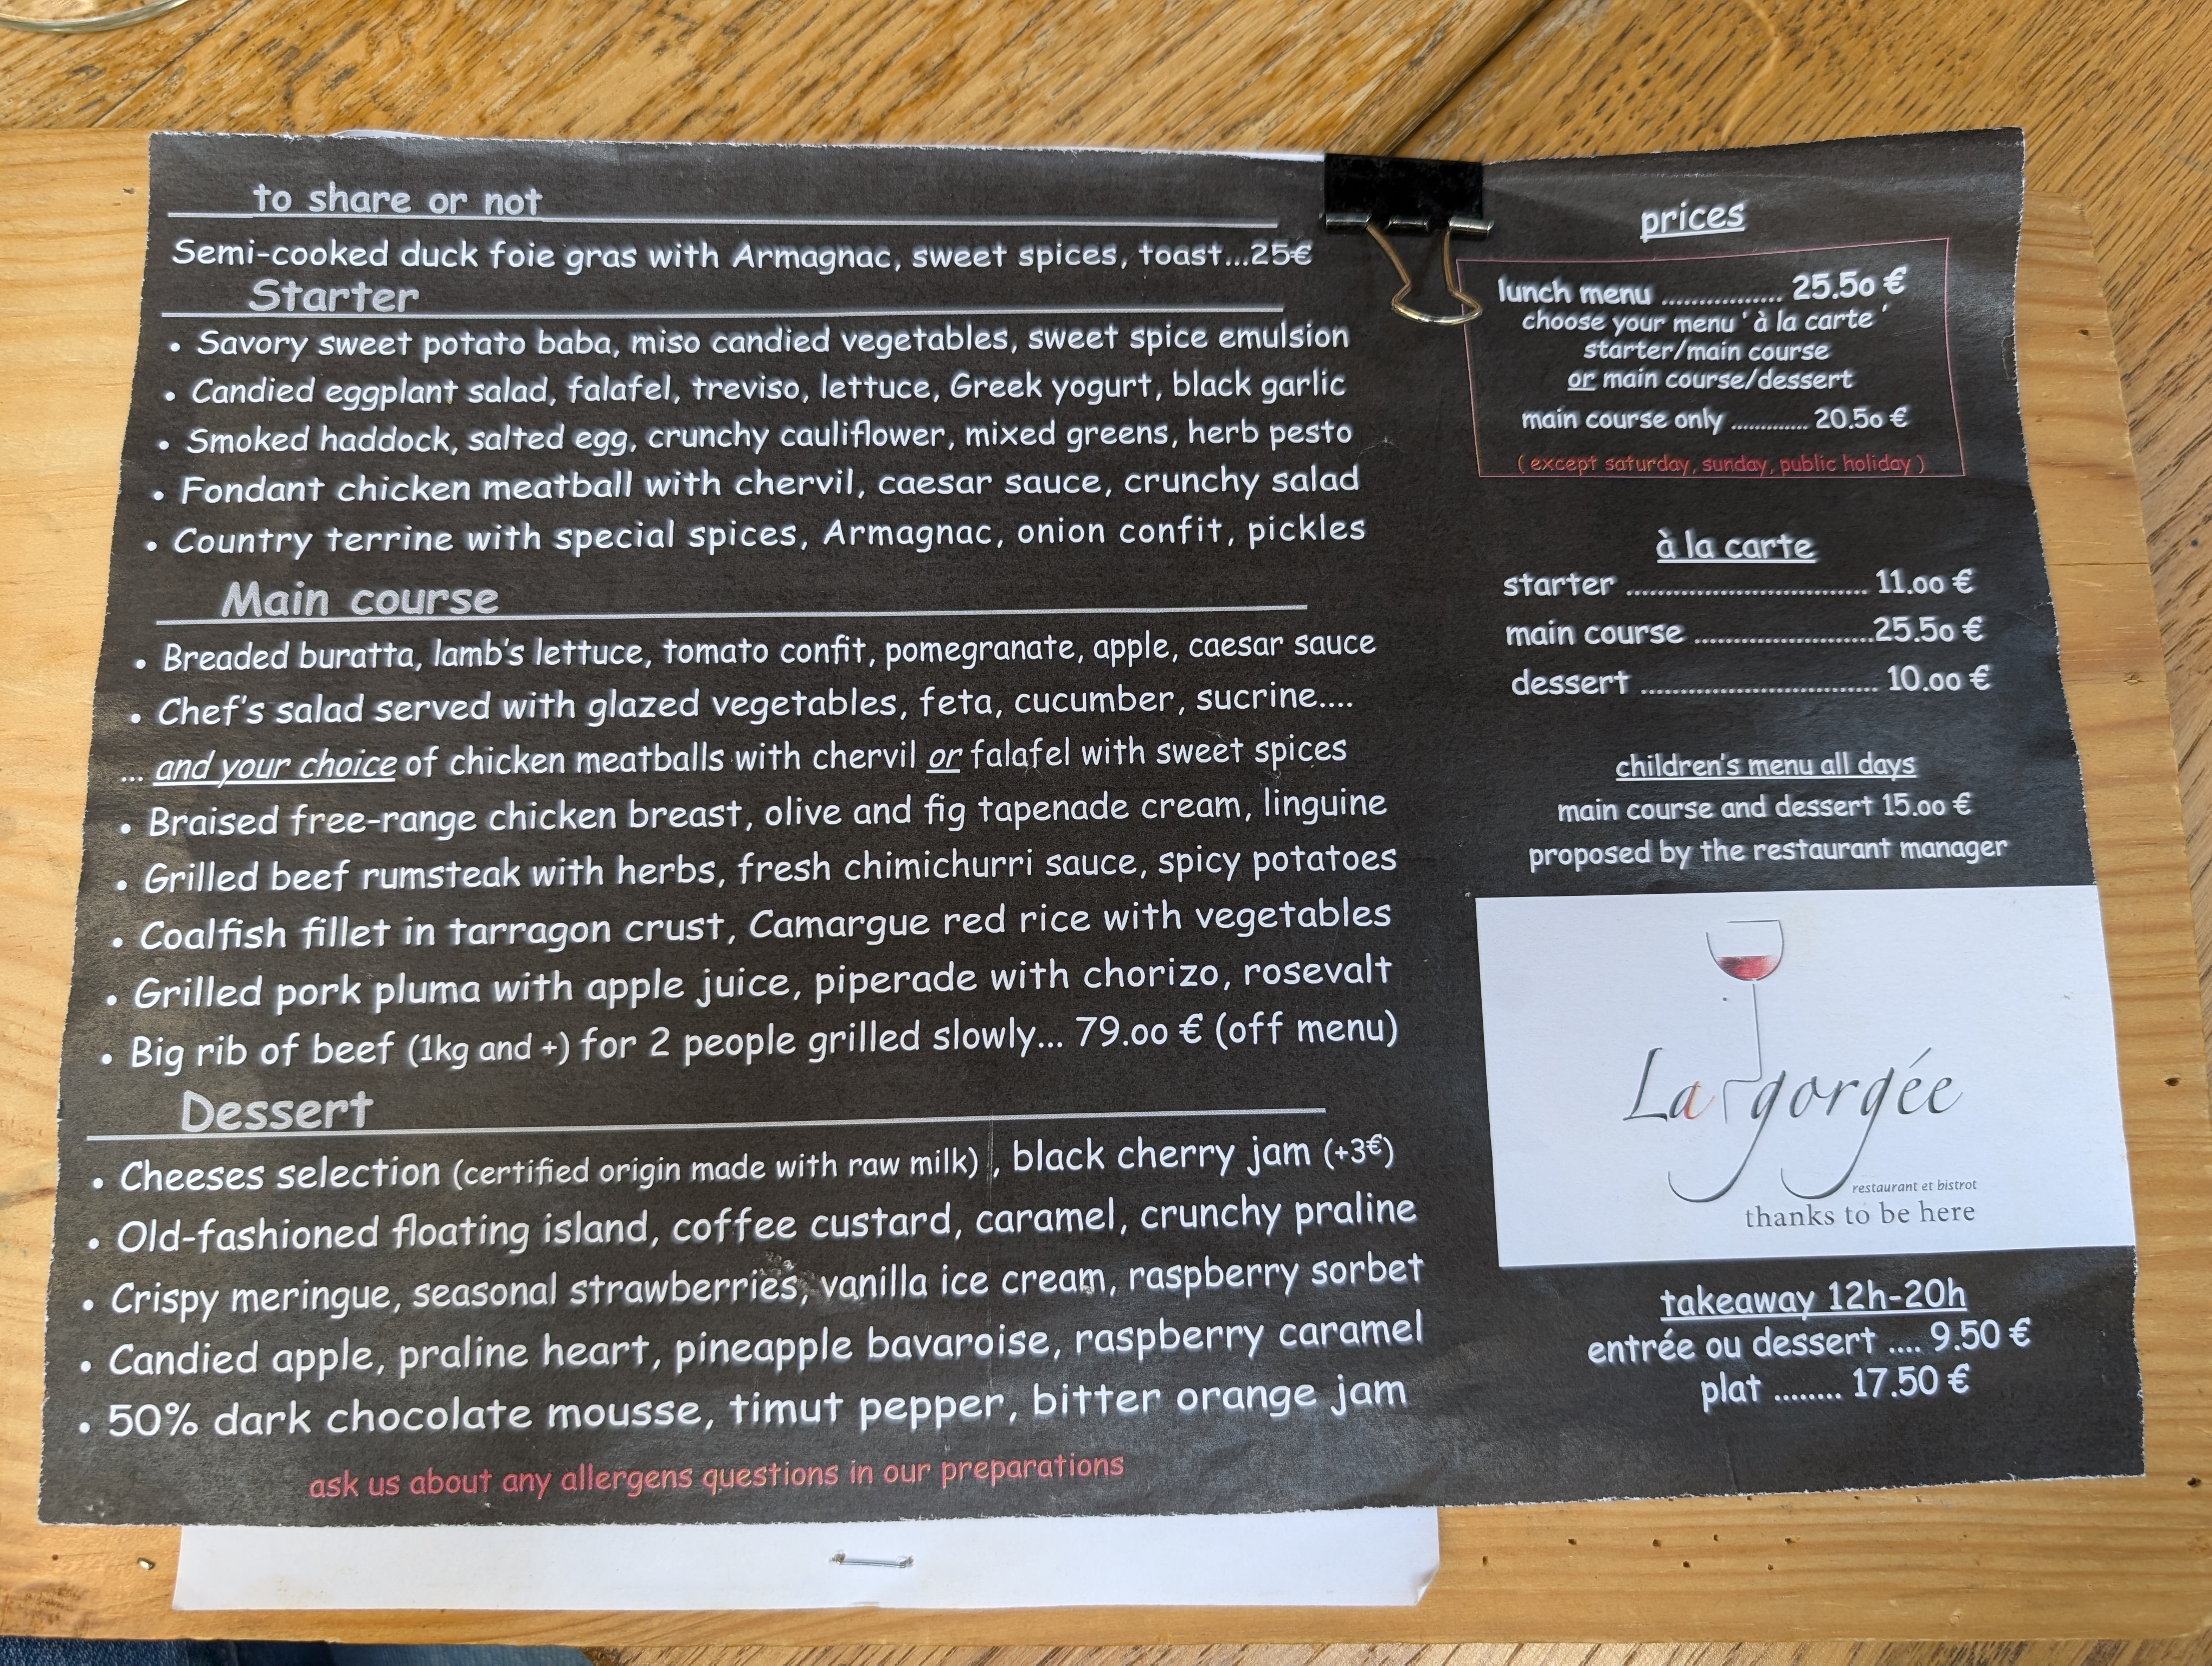 to share or not
Semi-cooked duck foie gras with Armagnac, sweet spices, toast...25€
Starter
• Savory sweet potato baba, miso candied vegetables, sweet spice emulsion
• Candied eggplant salad, falafel, treviso, lettuce, Greek yogurt, black garlic
• Smoked haddock, salted egg, crunchy cauliflower, mixed greens, herb pesto
• Fondant chicken meatball with chervil, caesar sauce, crunchy salad
• Country terrine with special spices, Armagnac, onion confit, pickles
Main course
• Breaded buratta, lamb's lettuce, tomato confit, pomegranate, apple, caesar sauce
• Chef's salad served with glazed vegetables, feta, cucumber, sucrine....
... and your choice of chicken meatballs with chervil or falafel with sweet spices
• Braised free-range chicken breast, olive and fig tapenade cream, linguine
• Grilled beef rumsteak with herbs, fresh chimichurri sauce, spicy potatoes
• Coalfish fillet in tarragon crust, Camargue red rice with vegetables
• Grilled pork pluma with apple juice, piperade with chorizo, rosevalt
• Big rib of beef (1kg and +) for 2 people grilled slowly... 79.00 € (off menu)
Dessert
• Cheeses selection (certified origin made with raw milk) , black cherry jam (+3€)
• Old-fashioned floating island, coffee custard, caramel, crunchy praline
• Crispy meringue, seasonal strawberries, vanilla ice cream, raspberry sorbet
• Candied apple, praline heart, pineapple bavaroise, raspberry caramel
• 50% dark chocolate mousse, timut pepper, bitter orange jam
ask us about any allergens questions in our preparations
prices
lunch menu ................ 25.50 €
choose your menu ' à la carte '
starter/main course
or main course/dessert
main course only ............. 20.50 €
( except saturday, sunday, public holiday )
à la carte
starter ............................... 11.00 €
main course .......................25.50 €
dessert .............................. 10.00 €
children's menu all days
main course and dessert 15.00 €
proposed by the restaurant manager
La gorgée
restaurant et bistrot
thanks to be here
takeaway 12h-20h
entrée ou dessert .... 9.50 €
plat ........ 17.50 €